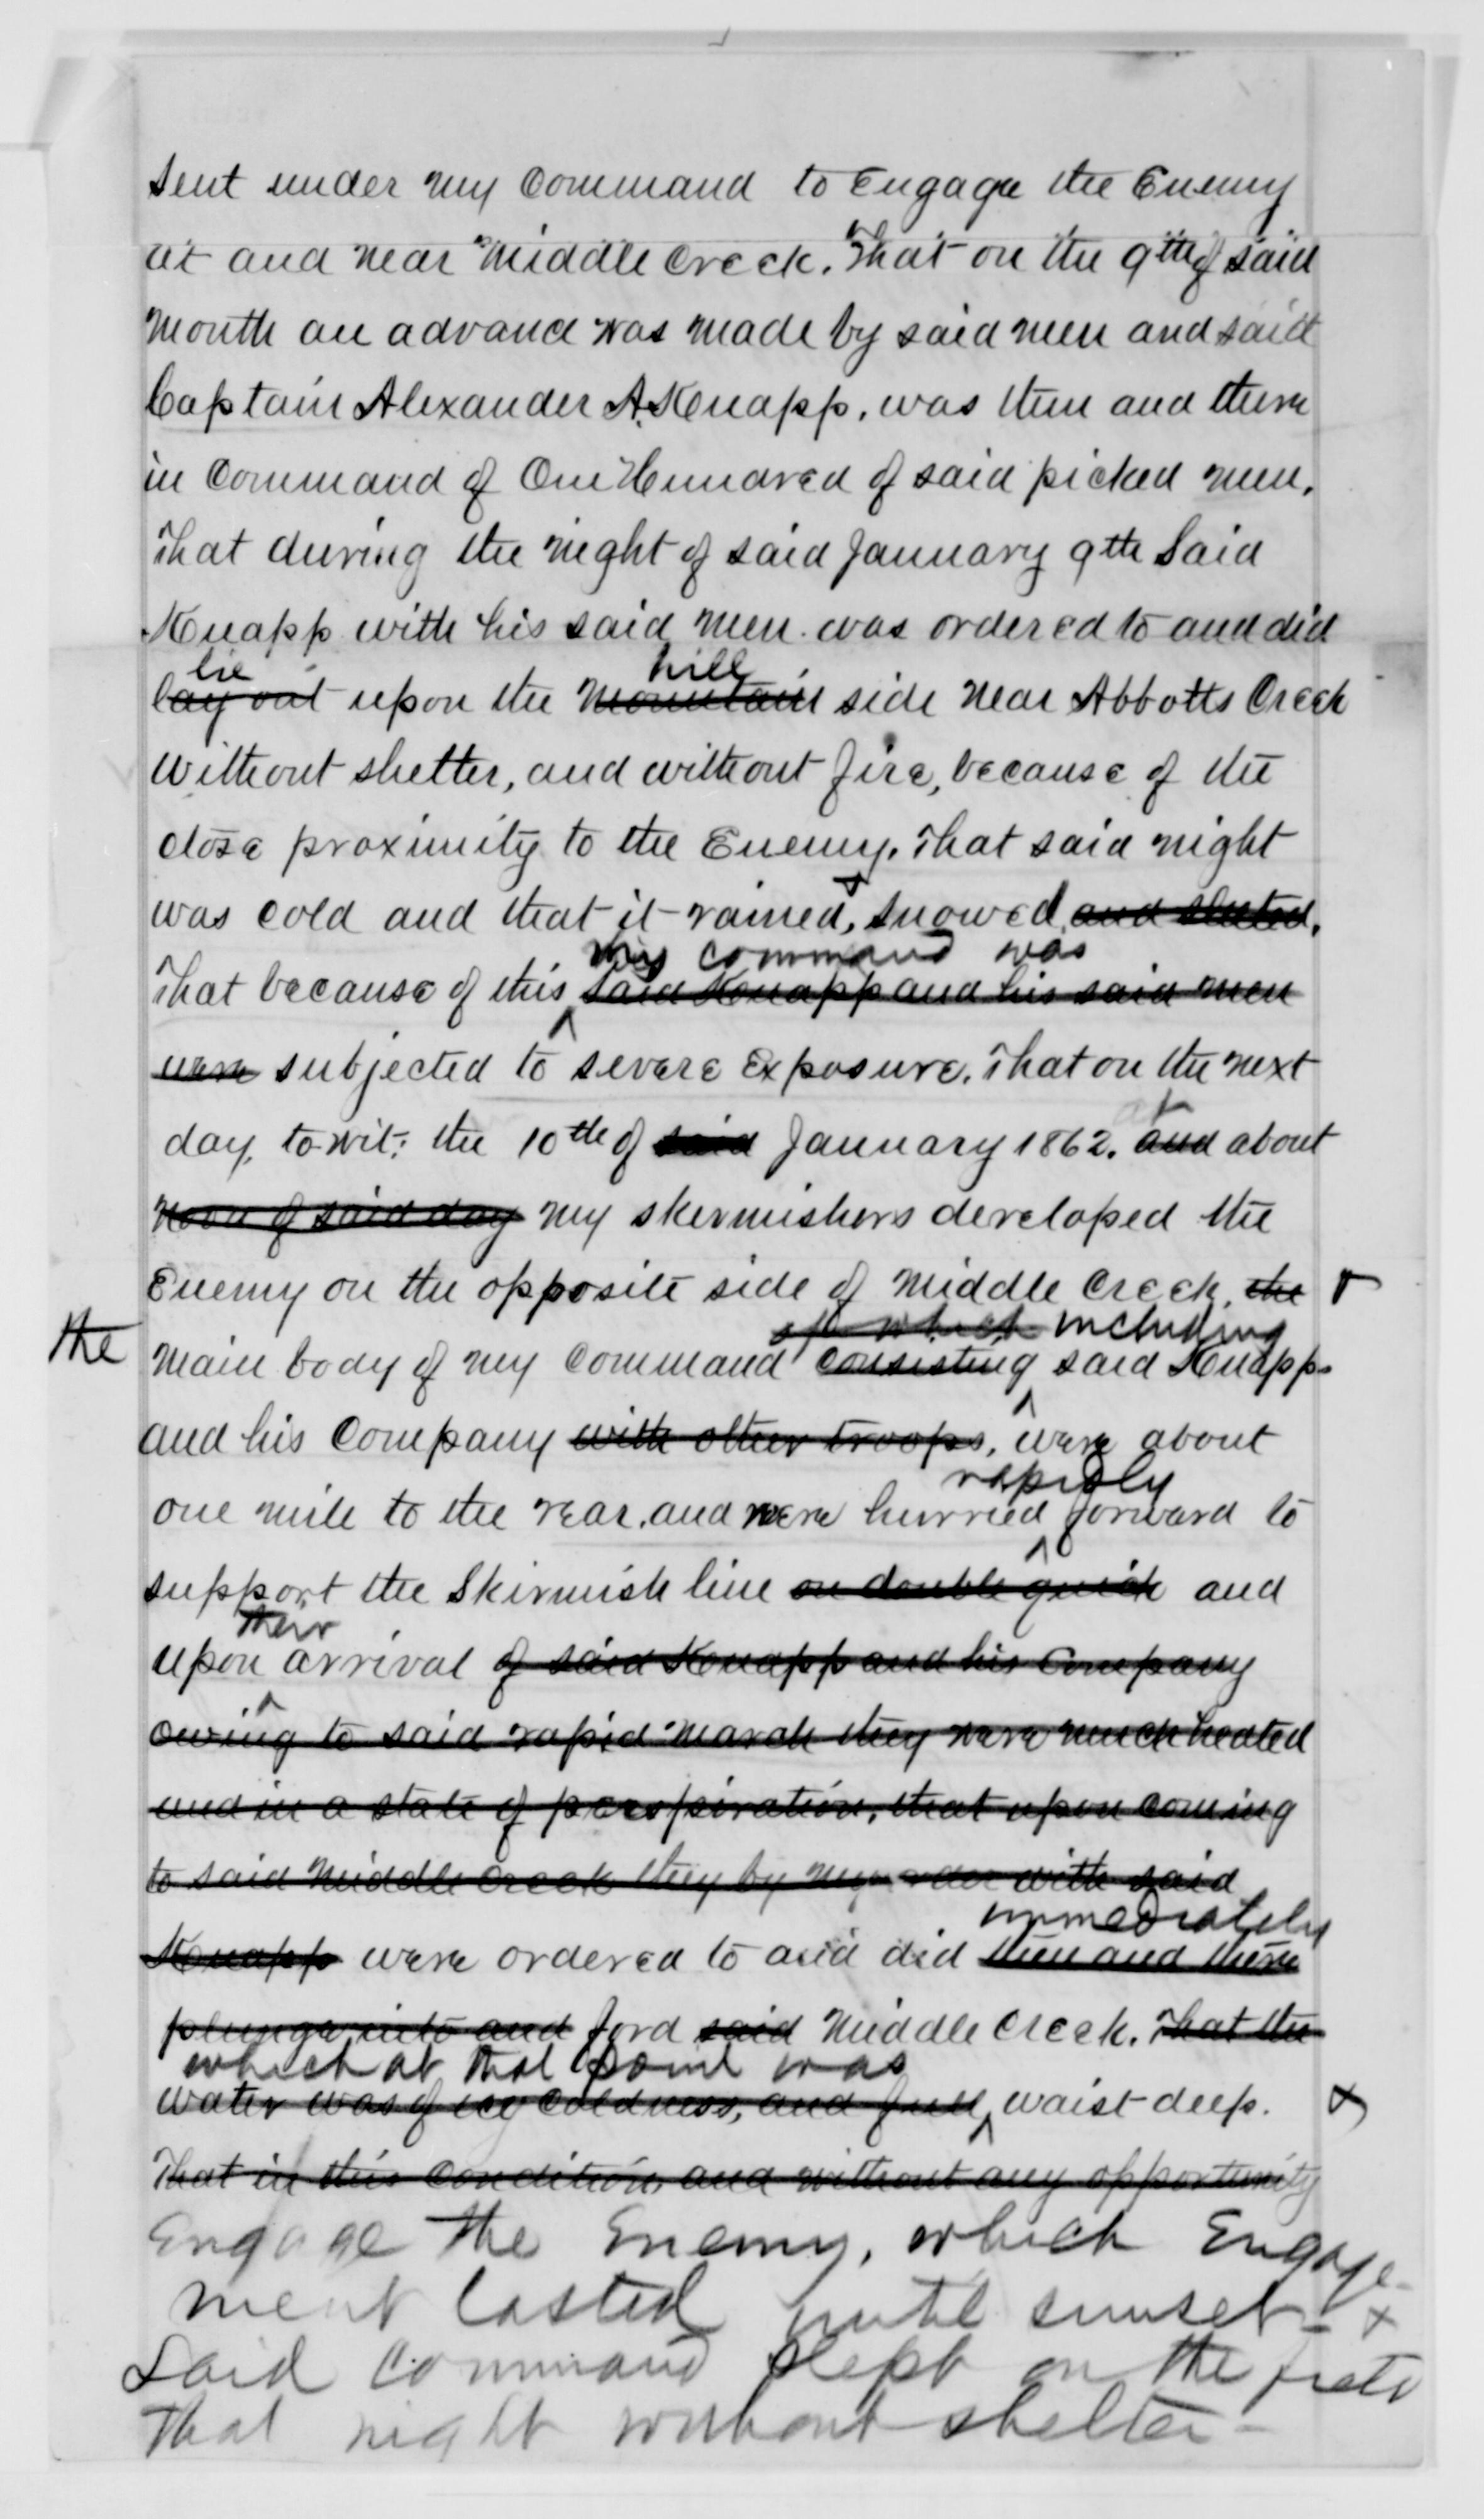 sent under my command to Engage the Enemy
at and near Middle Creek. That on the 9th of said
month an advance was made by said men and said
Captain Alexander A. Knapp, was then and there
in Command of One Hundred of said picked men.
That during the night of said January 9th Said
Knapp with his said men was ordered to and did
lie hill
lay out upon the mountain side near Abbotts Creek
without shelter, and without fire, because of the
close proximity to the Enemy. That said night
was cold and that it rained, & snowed, and sleeted,
my command was
That because of this said Knapp and his said men
were subjected to severe Exposure. That on the next
at
day, to-wit: the 10th of said January 1862. and about
noon of said day my skermishers developed the
Enemy on the opposite side of Middle Creek, the
of which including
the main body of my Command consisting said Knapp
and his Company with other troops, were about
rapidly
one mile to the rear, and were hurried forward to
support the Skirmish line on double quick and
their
upon arrival of said Knapp and his Company
owing to said rapid march they were much heated
and in a state of perspiration, that upon coming
to said Middle Creek they by my order with said
immediately
Knapp were ordered to and did then and there
plunge into and ford said Middle Creek. That the
which at that point was
water was of icy coldness, and full waist deep.
That in this condition and without any opportunity
Engage the Enemy, which Engage-
ment lasted until sunset - x
Said command slept on the field
that night without shelter -